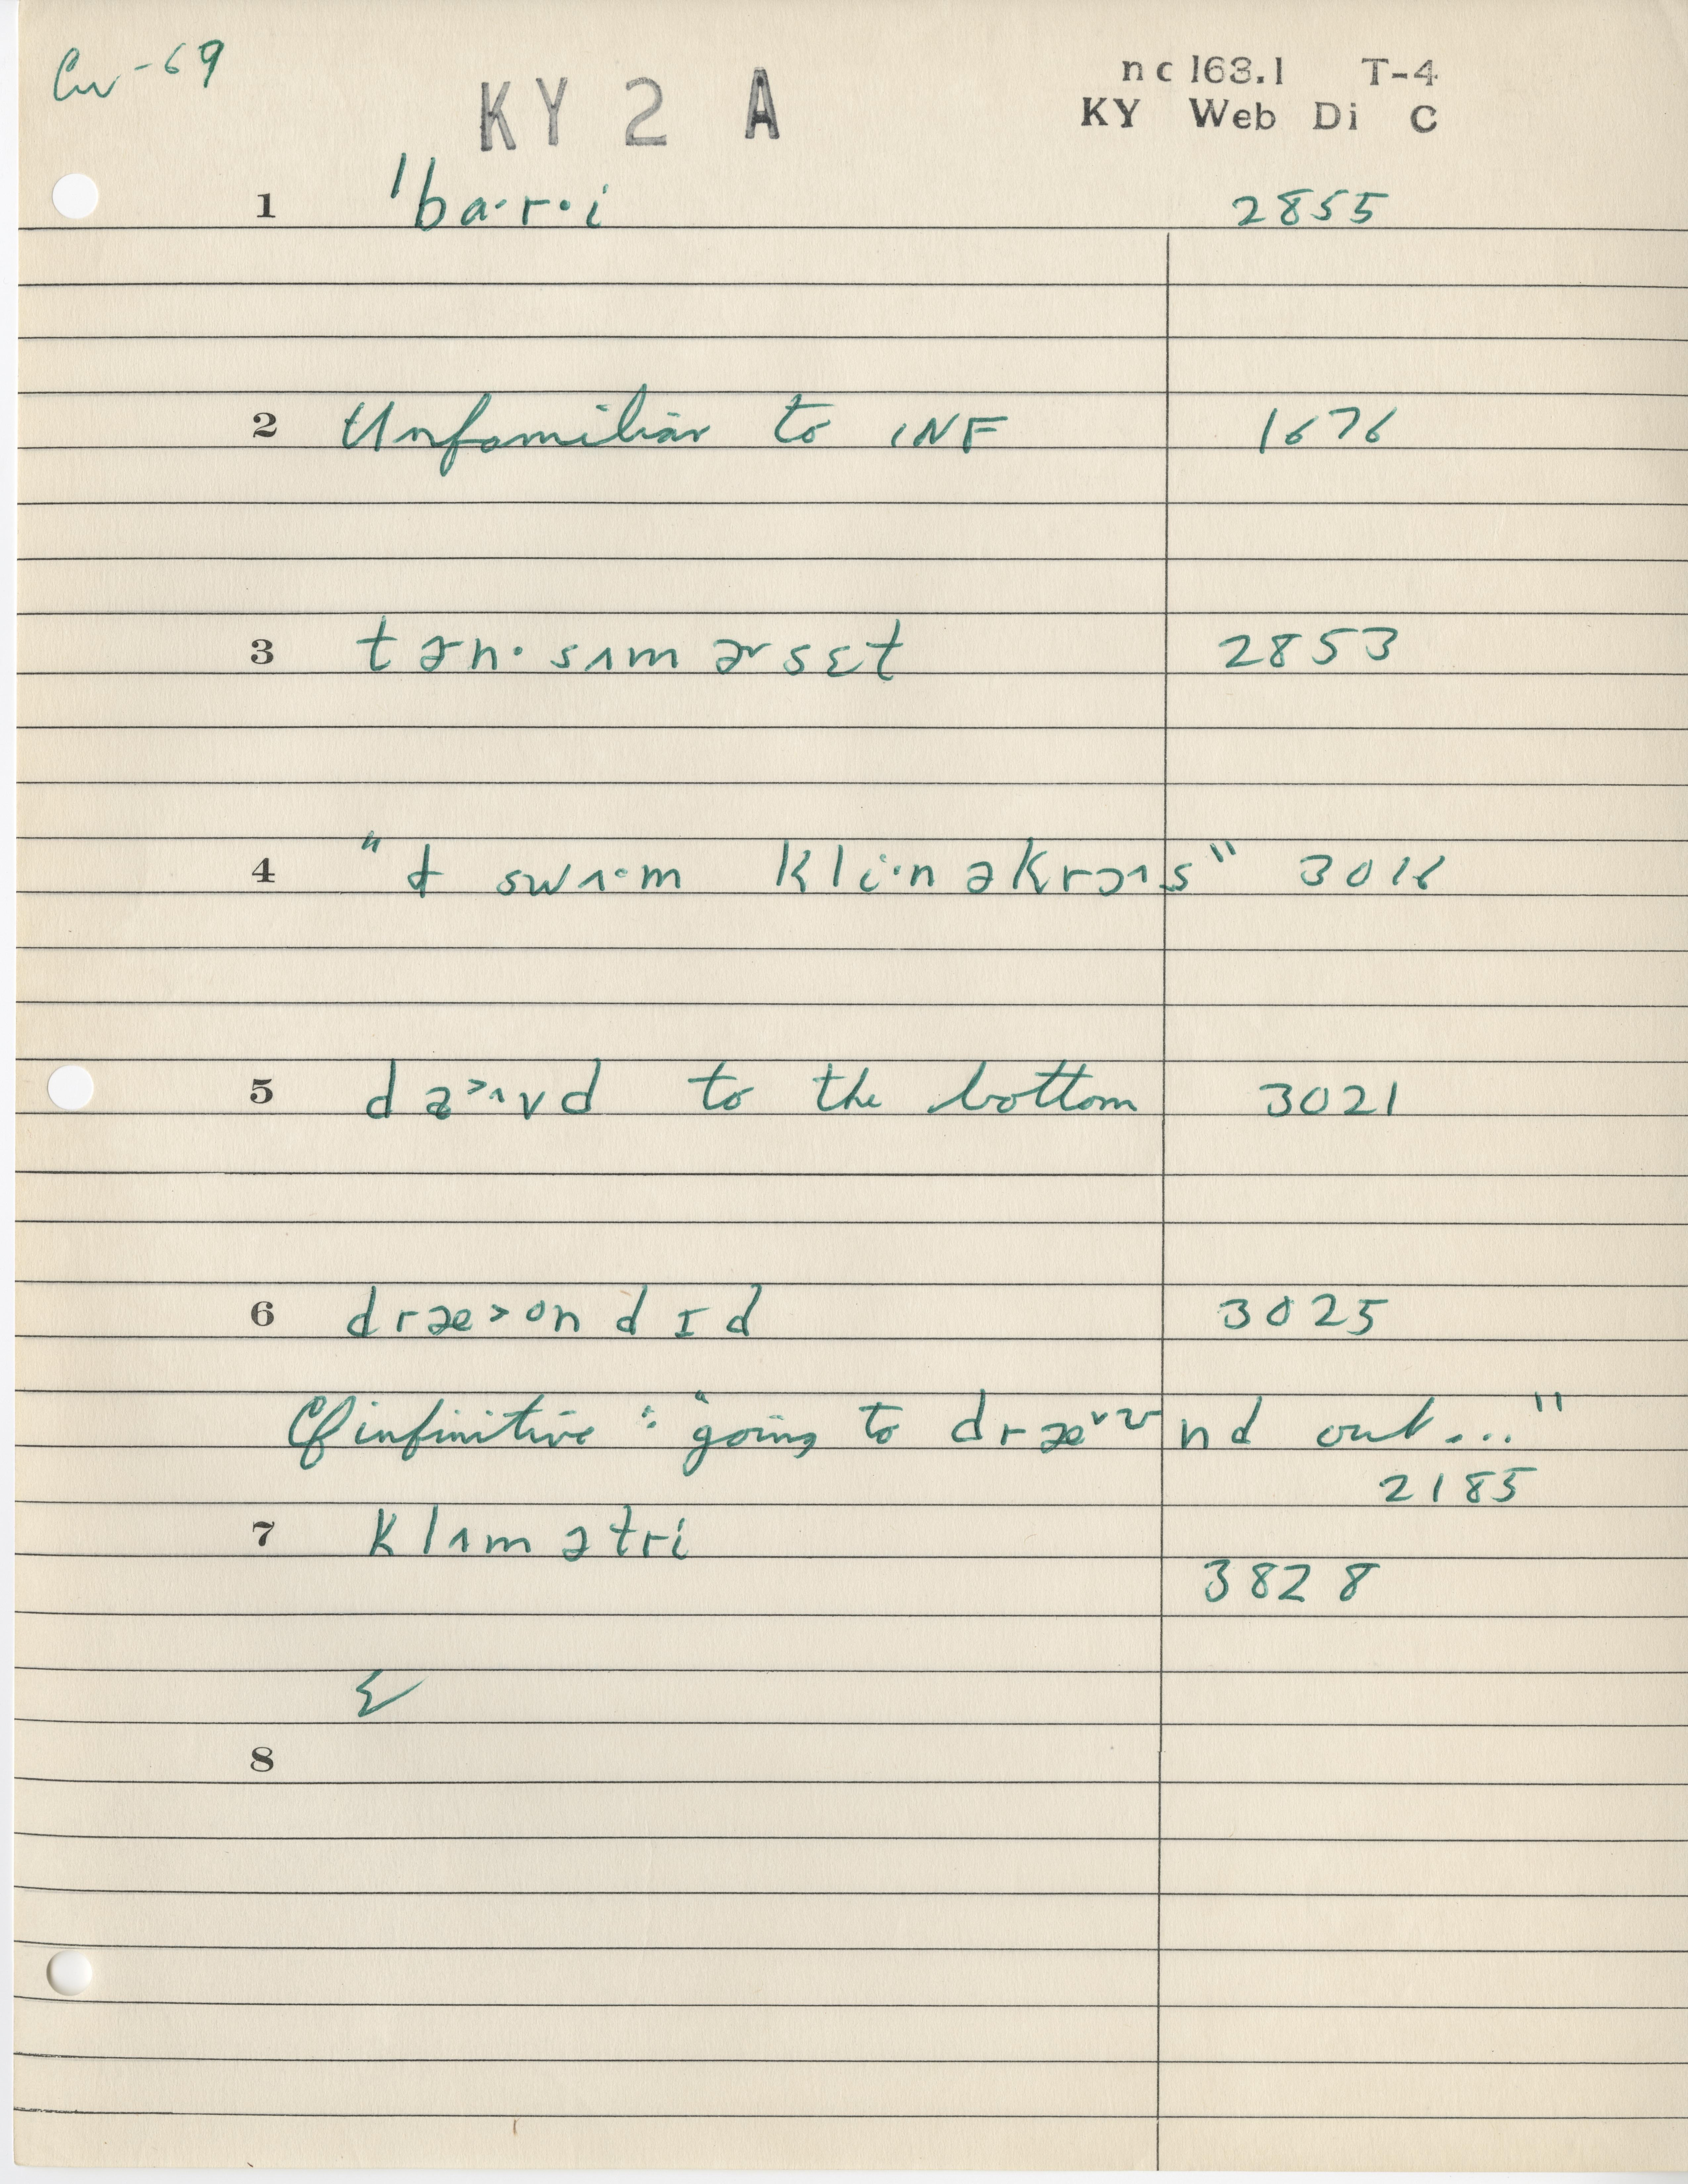 nc 163.1 T-4
KY 2 A
KY Web Di C
1 'ba·r·i 2855
2 Unfamiliar to INF 1676
3 tɚn·sʌmɚsɛt 2853
4 "ɨ swʌ·m kli·nəkrɔʌs" 3016
5 da>ʌvd to the bottom 3021
6 dræ>ən dɪd 3025
Cf infinitive : "going to dræ nd out..."
2185
7 klʌmətri
3828
8